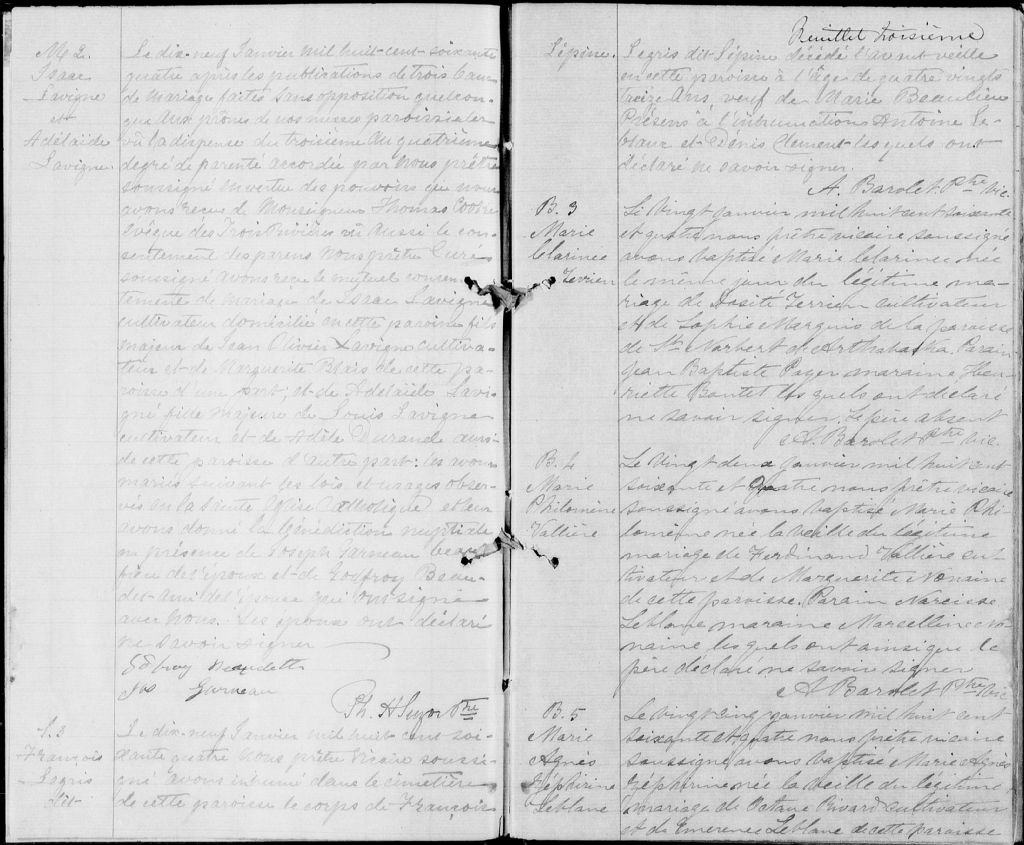 M 2.
Isaac
Lavigne
et
Adelaïde
Lavigne
Le dix-neuf Janvier mil huit-cent-soixante
quatre après les publications de trois bans
de mariage faites sans opposition quelcon-
que aux prônes de nos messes paroissiales
vû la dispense du troisième au quatrième
degré de parenté accordée par Nous prêtre
soussigné en vertu des pouvoirs que nous
avons reçus de Monseigneur Thomas Cooke
Evêque des Trois Rivières vû aussi le con-
sentement des parens Nous prêtre Curé
soussigné avons reçu le mutuel consen-
tement de mariage de Isaac Lavigne
cultivateur domicilié en cette paroisse fils
majeur de Jean Olivier Lavigne cultiva-
teur et de Marguerite Blais de cette pa-
roisse d'une part; et de Adelaïde Lavi-
gne fille majeure de Louis Lavigne
cultivateur et de Adèle Durand aussi
de cette paroisse d'autre part: les avons
mariés suivant les lois et usages obser-
vés en la Sainte Eglise Catholique et leur
avons donné la bénédiction nuptiale
en présence de Joseph Garneau beau
père de l'époux et de Godfroy Beau-
det ami de l'épouse qui ont signé
avec Nous. Les époux ont déclaré
ne savoir signer
Godfroy Beaudette
Jos Garneau
Ph. H Suzor Ptre
S. 3
François
Legris
dit
Le dix-neuf Janvier mil huit-cent soi-
xante quatre Nous prêtre Vicaire soussi-
gné avons inhumé dans le cimetière
de cette paroisse le corps de François
Feuillet troisième
Lépine.
Legris dit Lépine décédé l'avant veille
en cette paroisse à l'âge de quatre vingts
treize ans, veuf de Marie Beaulieu
Présens à l'inhumations Antoine Le-
blanc et Dénis Clement lesquels ont
déclaré ne savoir signer.
A. Barolet Ptre Vic.
B. 3
Marie
Clarince
Terrien
Le vingt janvier mil huit cent soixante
et quatre nous prêtre vicaire soussigné
avons baptisé Marie Clarince née
le même jour du légitime ma-
riage de Dosité Terrien cultivateur
et de Sophie Marquis de la paroisse
de St Norbert de Arthabaska. Parain
Jean Baptiste Payer maraine Hen-
riette Boutet lesquels ont déclaré
ne savoir signer. Le père absent
A. Barolet Ptre Vic.
B. 4
Marie
Philomène
Vallière
Le vingt deux janvier mil huit cent
soixante et Quatre nous prêtre vicaire
soussigné avons baptisé Marie Phi-
lomène née la veille du légitime
mariage de Ferdinand Vallière cul-
tivateur et de Marguerite Nonaine
de cette paroisse. Parain Narcisse
Leblanc maraine Marselline No-
naine lesquels ont ainsi que le
père déclaré ne savoir signer
A Barolet Ptre Vic
B. 5
Marie
Agnès
Zéphirine
Leblanc
Le vingt cinq janvier mil huit cent
soixante et quatre nous prêtre vicaire
soussigné avons baptisé Marie Agnès
Zéphirine née la veille du légitime
mariage de Octave Rivard cultivateur
et de Emerence Leblanc de cette paroisse